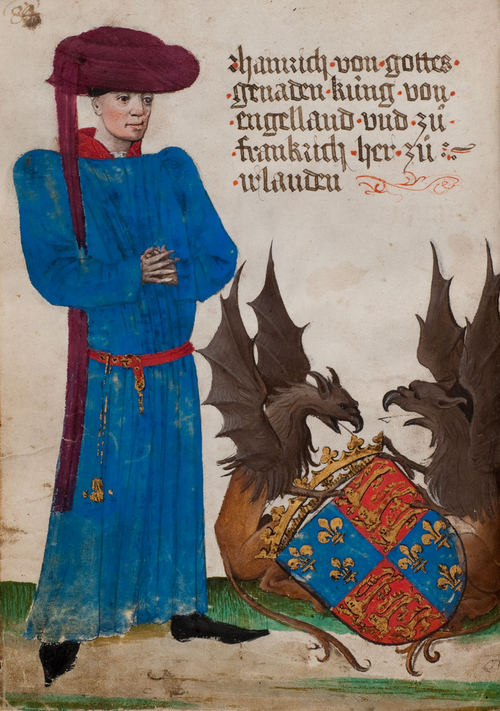 hainrich · von · gottes ·
genaden · küng · von ·
· engelland · vnd · zů ·
· frankrich · her · zů ·
irlanden